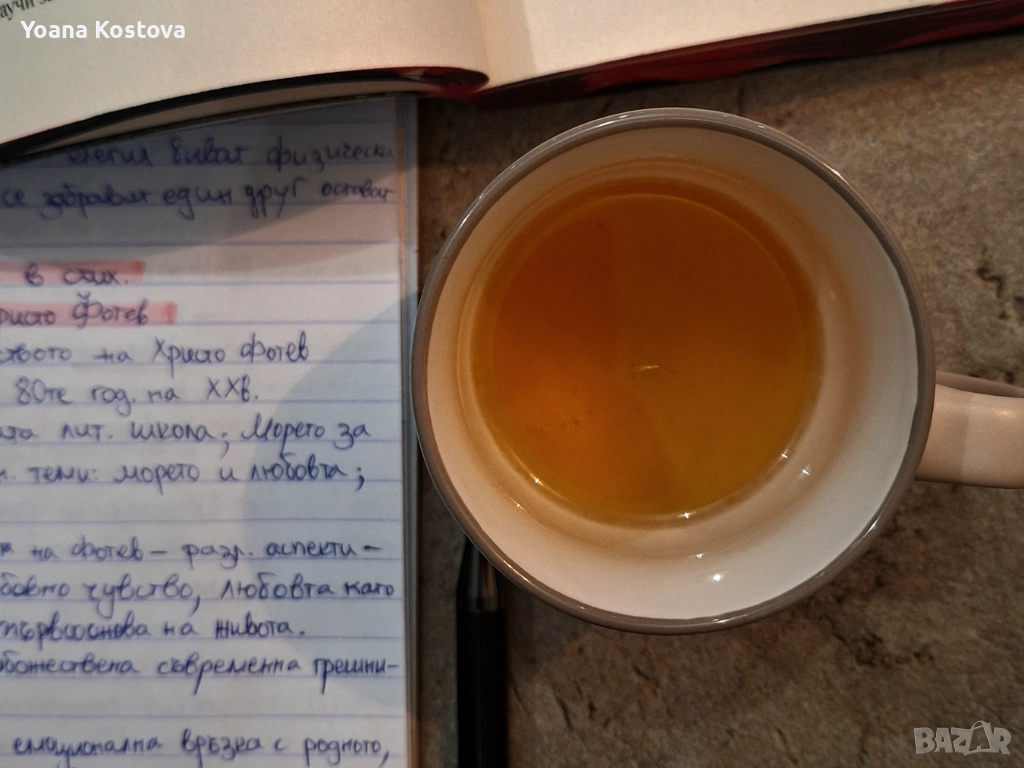 Yoana Kostova
елегия биват физически
се забравят един друг остават
в стих.
Фотев
на Христо Фотев
80те год. на XXв.
лит. школа; Морето за
теми: морето и любовта;
на Фотев – разл. аспекти –
чувство, любовта като
първооснова на живота.
съвременна грешни-
емоционална връзка с родното,
BAZAR